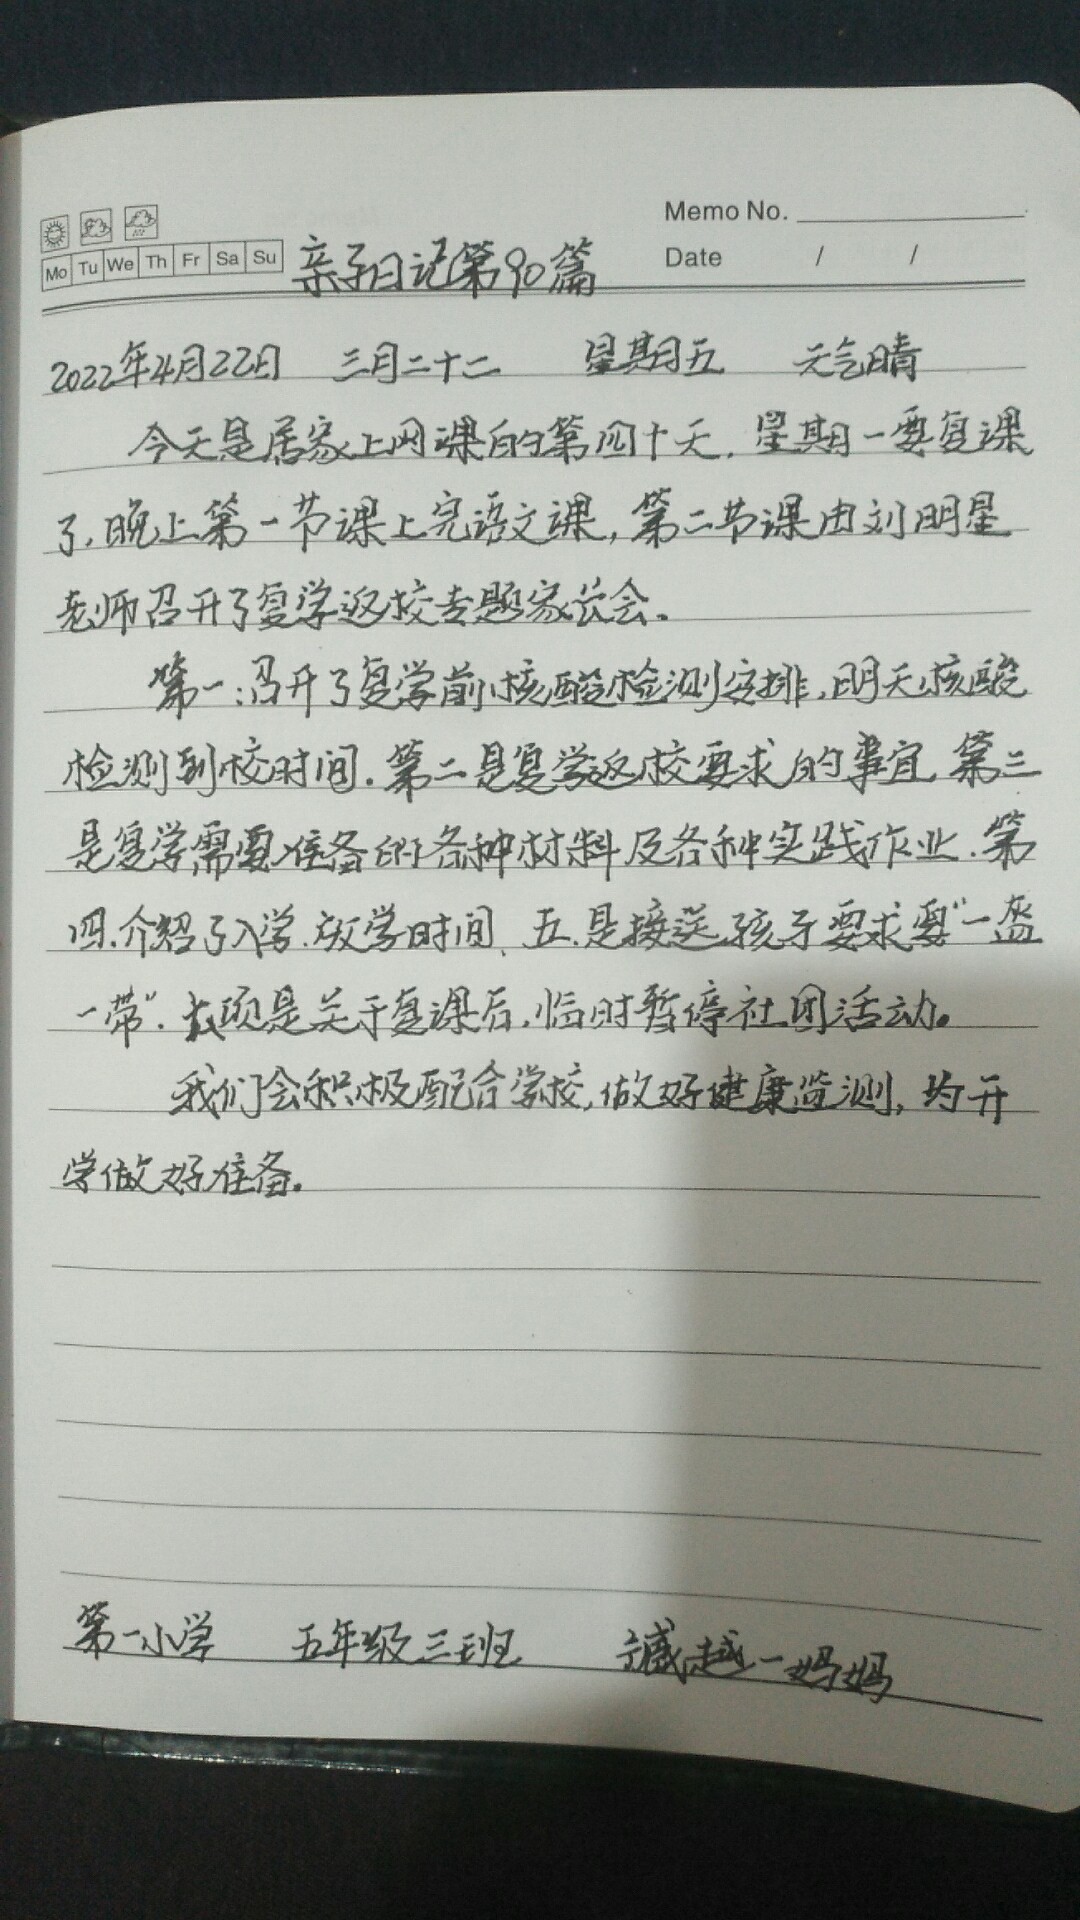 Memo No.
Mo Tu We Th Fr Sa Su
Date / /
亲子日记第90篇
2022年4月22日 三月二十二 星期五 天气晴
今天是居家上网课的第四十天,星期一要复课
了,晚上第一节课上完语文课,第二节课由刘明星
老师召开了复学返校专题家长会。
第一:召开了复学前核酸检测安排,明天核酸
检测到校时间.第二是复学返校要求的事宜,第三
是复学需要准备的各种材料及各种实践作业.第
四.介绍了入学.放学时间、五.是接送孩子要求要“一盔
一带”.六项是关于复课后,临时暂停社团活动。
我们会积极配合学校,做好健康监测,为开
学做好准备。
第一小学 五年级三班 越一妈妈